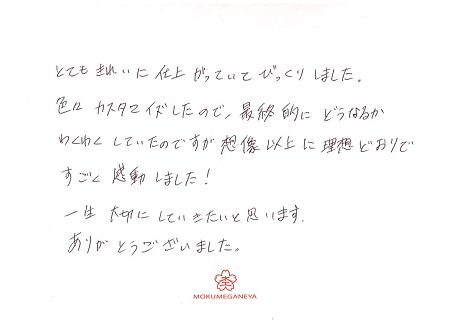 とてもきれいに仕上がっていてびっくりしました。
色々カスタマイズしたので、最終的にどうなるか
わくわくしていたのですが想像以上に理想どおりで
すごく感動しました!
一生大切にしていきたいと思います.
ありがとうございました。
MOKUMEGANEYA